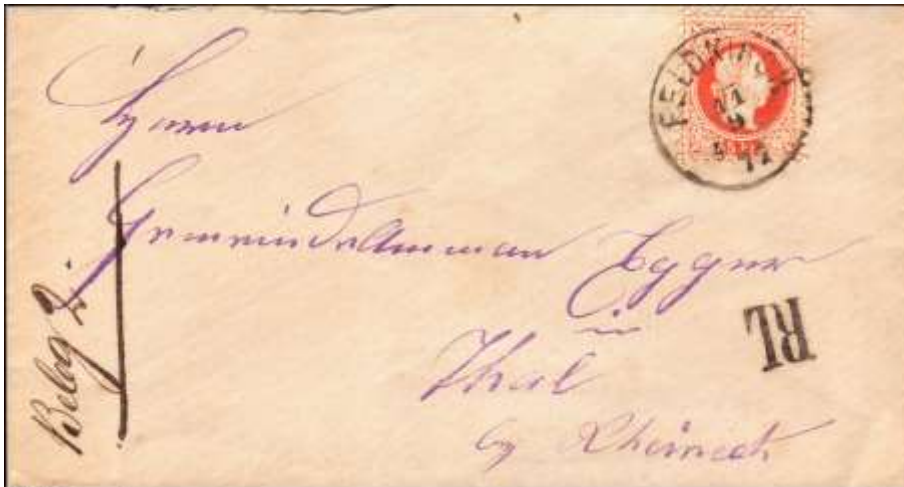 FELDKIRCH
11
9
77
Herrn
Gemeindeammann Egger
in
Thal
by Rheineck
RL
Beleg 2.